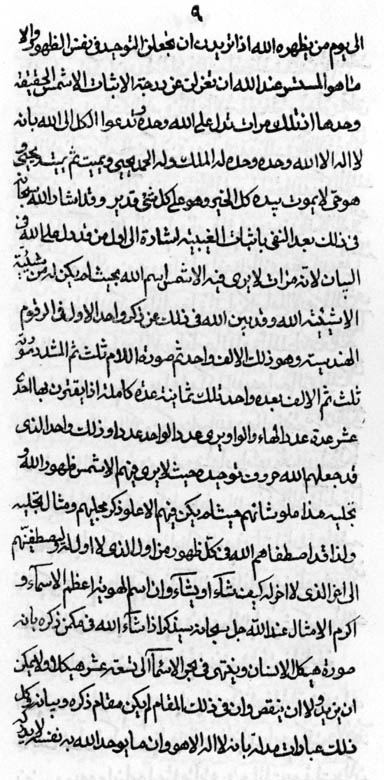 ٩
الى يوم من يظهره الله اذا تريدن ان تجعلن التوحيد فى نفس الظهور والا
ما هو المستسر عند الله ان تعزلن عن بدجة الاثبات الا شمس الحقيقة
وحدها اذ تلك مرات تدل على الله وحده وتدعوا الكل الى الله بانه
لا اله الا الله وحده وحده له الملك وله الحمد يحيى ويميت ثم يميت ويحيى و
هو حى لا يموت بيده كل الخير وهو على كل شئ قدير وقد اشار الله
فى ذلك بعد النفى باثبات الغيبية اشارة الى اول من قد دل على الله فى
البيان لانه مرات لا يرى فيه الا شمس اسم الله بحيث لم يكن له من مشية
الا مشية الله وقد بين الله فى ذلك عن ذكر واحد الاول فى الرقوم
الهندسية وهو ذلك الالف واحد ثم صورة اللام ثلث ثم الشد
ثلث ثم الالف بعده واحد تلك ثمانية عدة كاملة اذا يقترن بها احدى
عشر عدة عدد الهاء والواو يرى عدد الواحد عددا وذلك واحد الذى
قد جعلهم الله حروف توحيده حيث لا يرى فيهم الا شمس ظهور الله و
تجليه هذا علو شانهم حيث لم يكن فيهم الا علو ذكر مجليهم ومثال تجليه
ولذا قد اصطفاهم الله فى كل ظهور من اول الذى لا اول له
الى اخر الذى لا اخر له كيف شآء او يشآء وان اسم الهوية اعظم الاسمآء و
اكرم الامثال عند الله جل سبحانه سيذكر اذا شآء الله فى مكمن ذكره بانه
صورة هيكل الانسان وينتهى فى بحر الاسمآ الى تسعة عشر هيكلا ولا يمكن
ان يزيد ولا ان ينقص وان فى ذلك المقام لم يكن مقام ذكره وبيانه وكل
ذلك عبادات مدلة بانه لا اله الا هو وان ما يوحد الله به نفسه